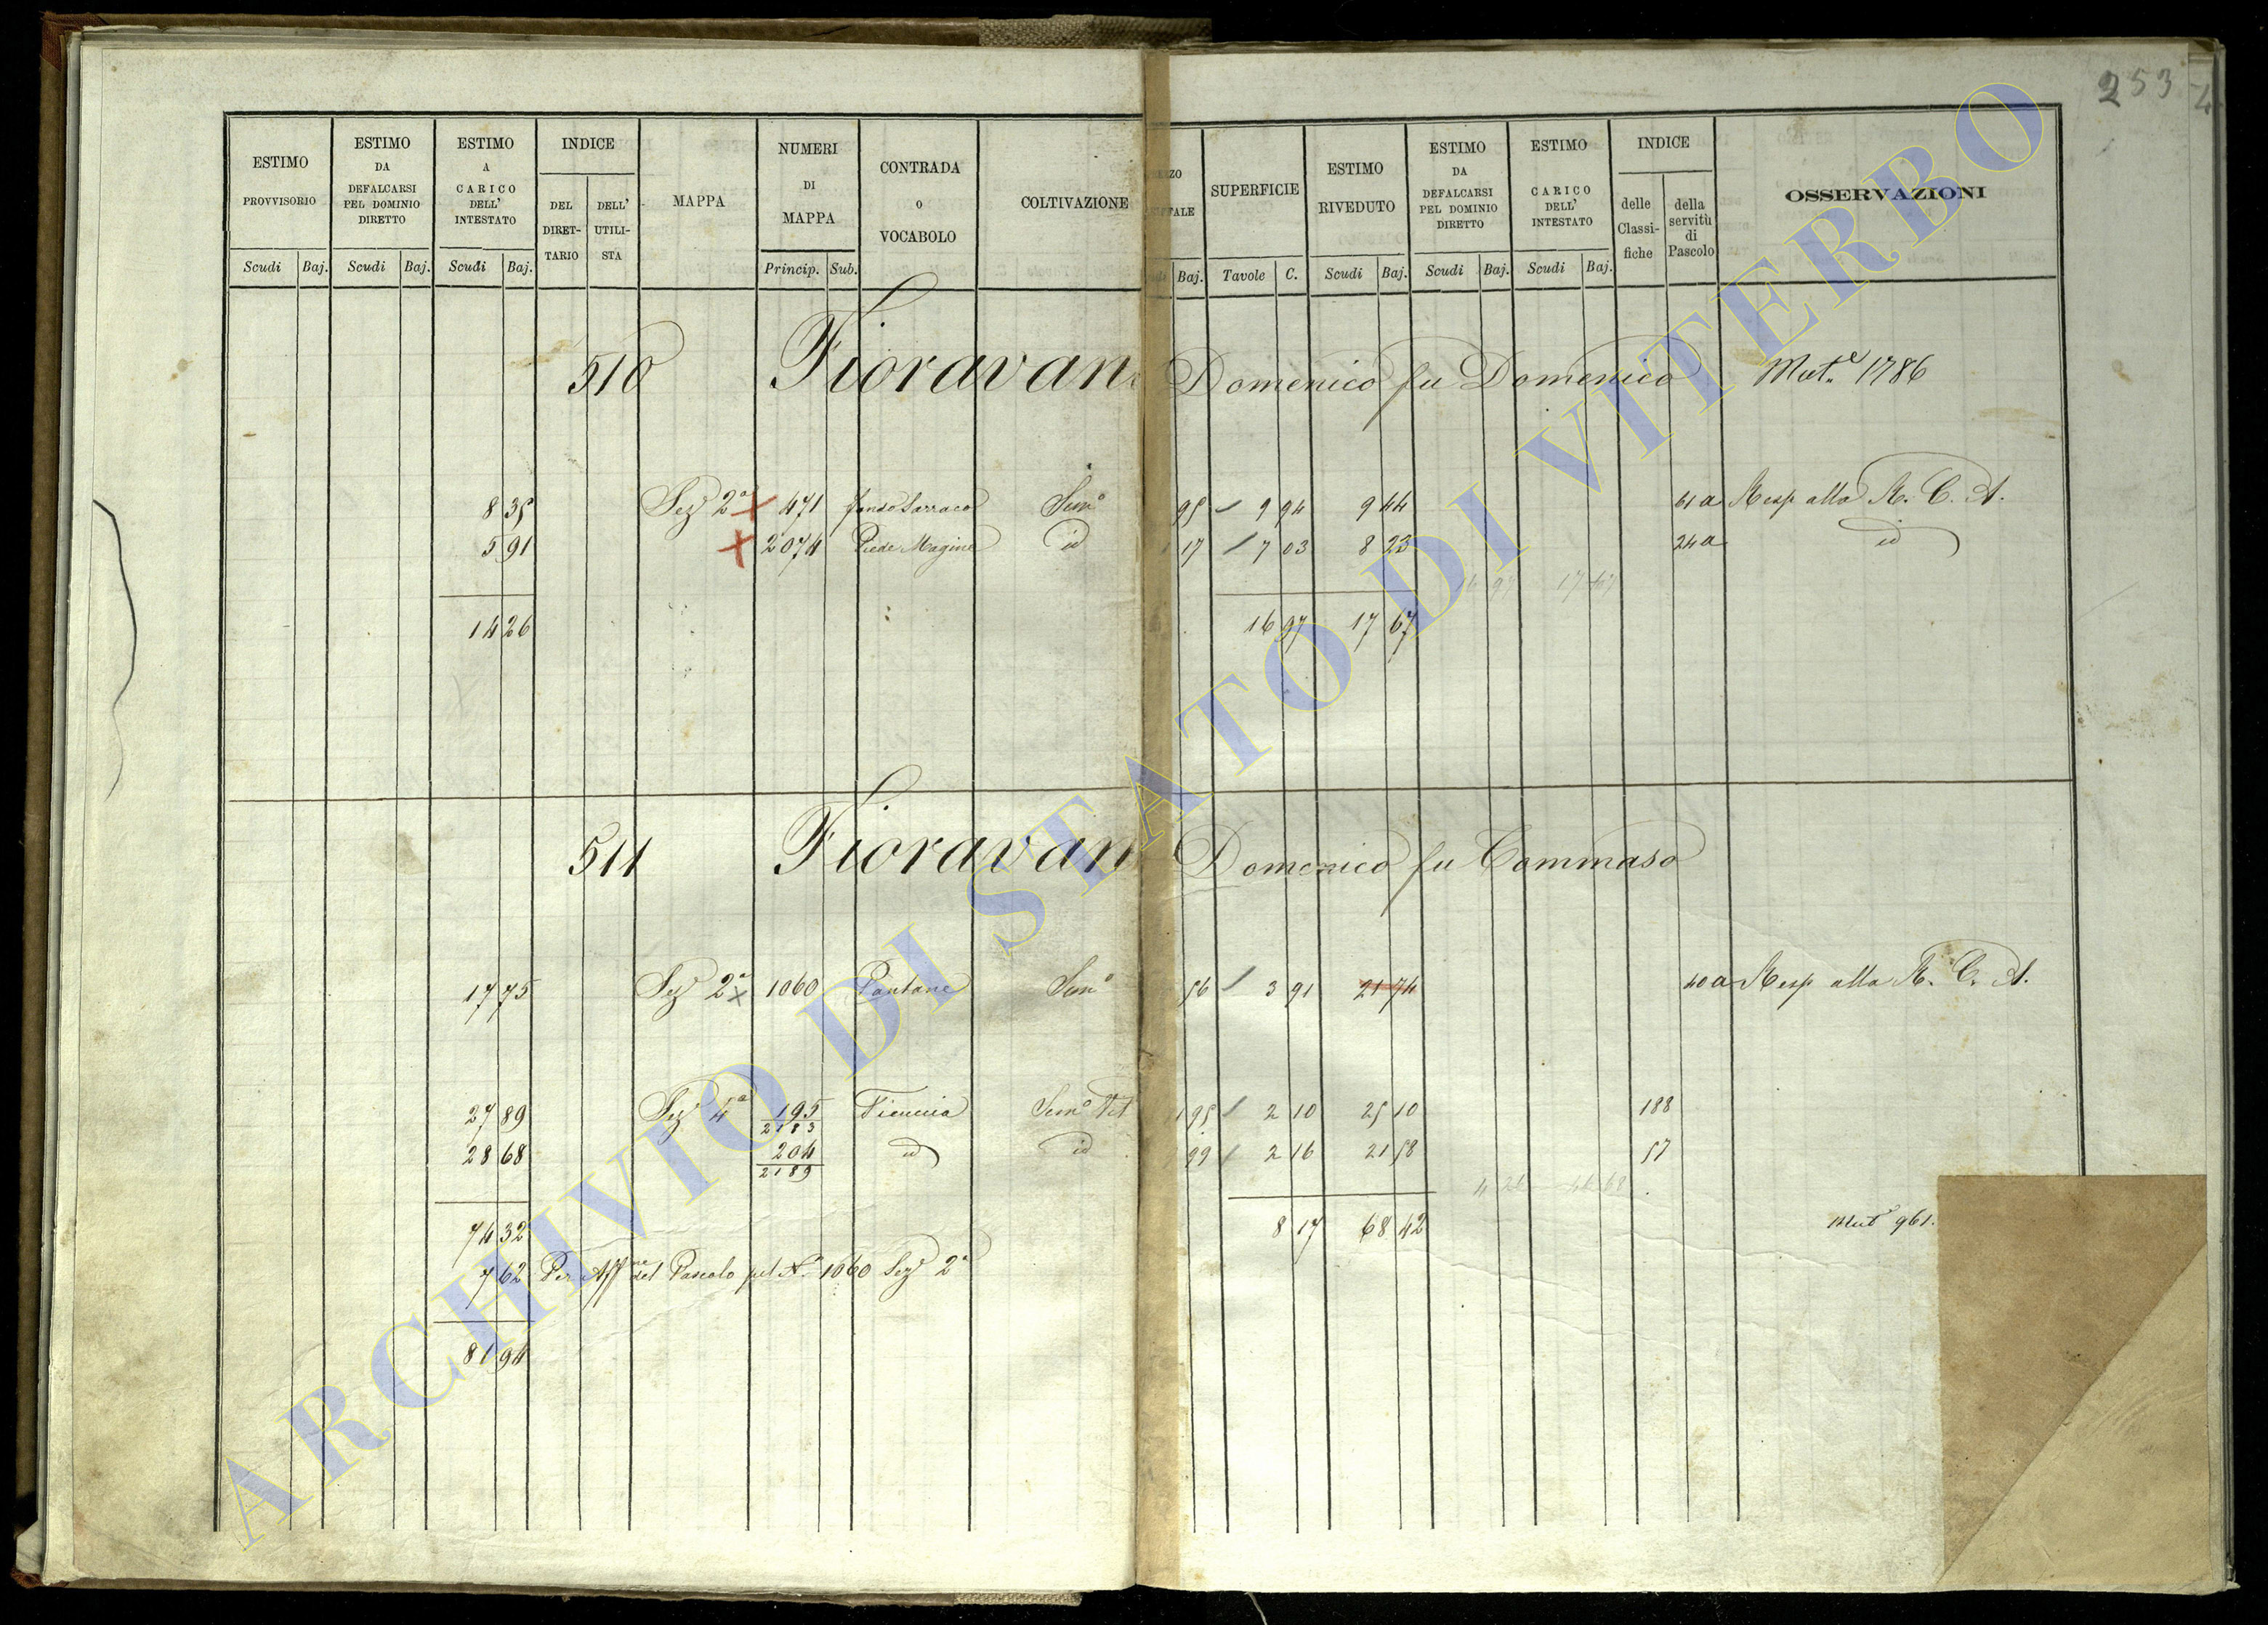 253
ESTIMO PROVVISORIO Scudi Baj.
ESTIMO DA DEFALCARSI PEL DOMINIO DIRETTO Scudi Baj.
ESTIMO A CARICO DELL' INTESTATO Scudi Baj.
INDICE DEL DIRET-TARIO DELL' UTILI-STA
MAPPA
NUMERI DI MAPPA Princip. Sub.
CONTRADA O VOCABOLO
COLTIVAZIONE
Baj.
SUPERFICIE Tavole C.
ESTIMO RIVEDUTO Scudi Baj.
ESTIMO DA DEFALCARSI PEL DOMINIO DIRETTO Scudi Baj.
ESTIMO CARICO DELL' INTESTATO Scudi Baj.
INDICE delle Classi-fiche della servitù di Pascolo
OSSERVAZIONI
510 Fioravan Domenico fu Domenico Mut.e 1786
8 35 Sez 2a 471 Semo 95 9 94 9 44 61 a Resp alla R. C. A.
5 91 2074 Piede Magine id 17 7 03 8 23 24 a id
14 26 16 97 17 67
511 Fioravan Domenico fu Tommaso
17 75 Sez 2a 1060 Pantane Semo 56 3 91 21 74 40 a Resp alla R. C. A.
27 89 Sez 4a 195 2183 Ficuccia Semo Vit 95 2 10 25 10 188
28 68 204 2189 id id 99 2 16 21 58 57
74 32 8 17 68 42 Mut 961.
7 62 Per Affne del Pascolo pel No 1060 Sez 2a
81 94
ARCHIVIO DI STATO DI VITERBO